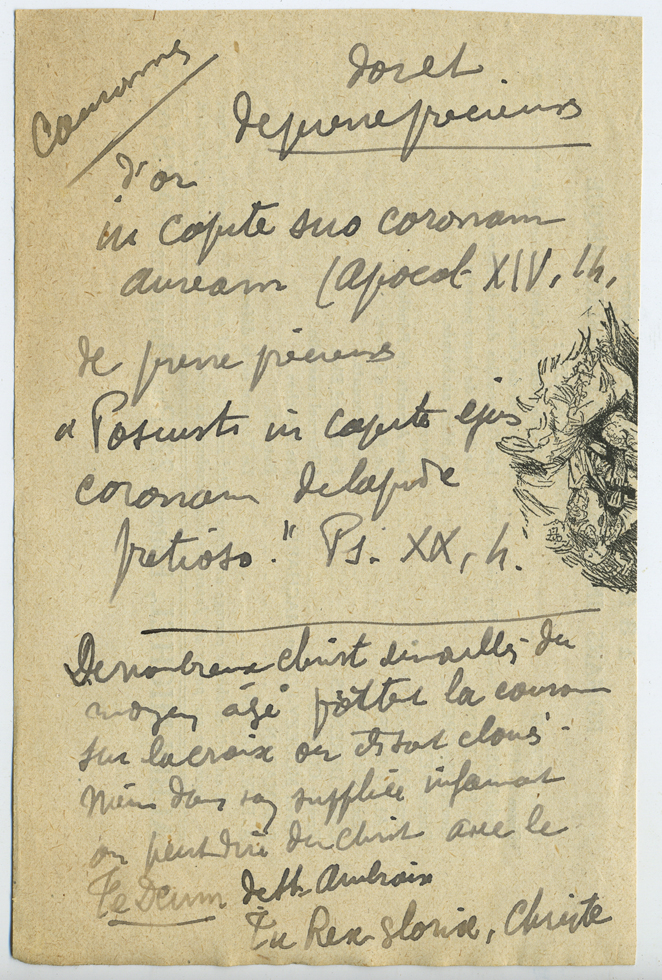 Couronnes
d'or et
de pierre précieuses
d'or
in capite suo coronam
auream (Apocal. XIV, 14.
de pierre précieuses
« Posuisti in capite ejus
coronam de lapide
pretioso." Ps. XX, 4.
De nombreux Christ émaillés du
moyen âge portent la couronne
sur la croix où ils sont cloués.
Même dans son supplice infamant
on peut dire du Christ avec le
Te Deum de St. Ambroise
Tu Rex gloriæ, Christe